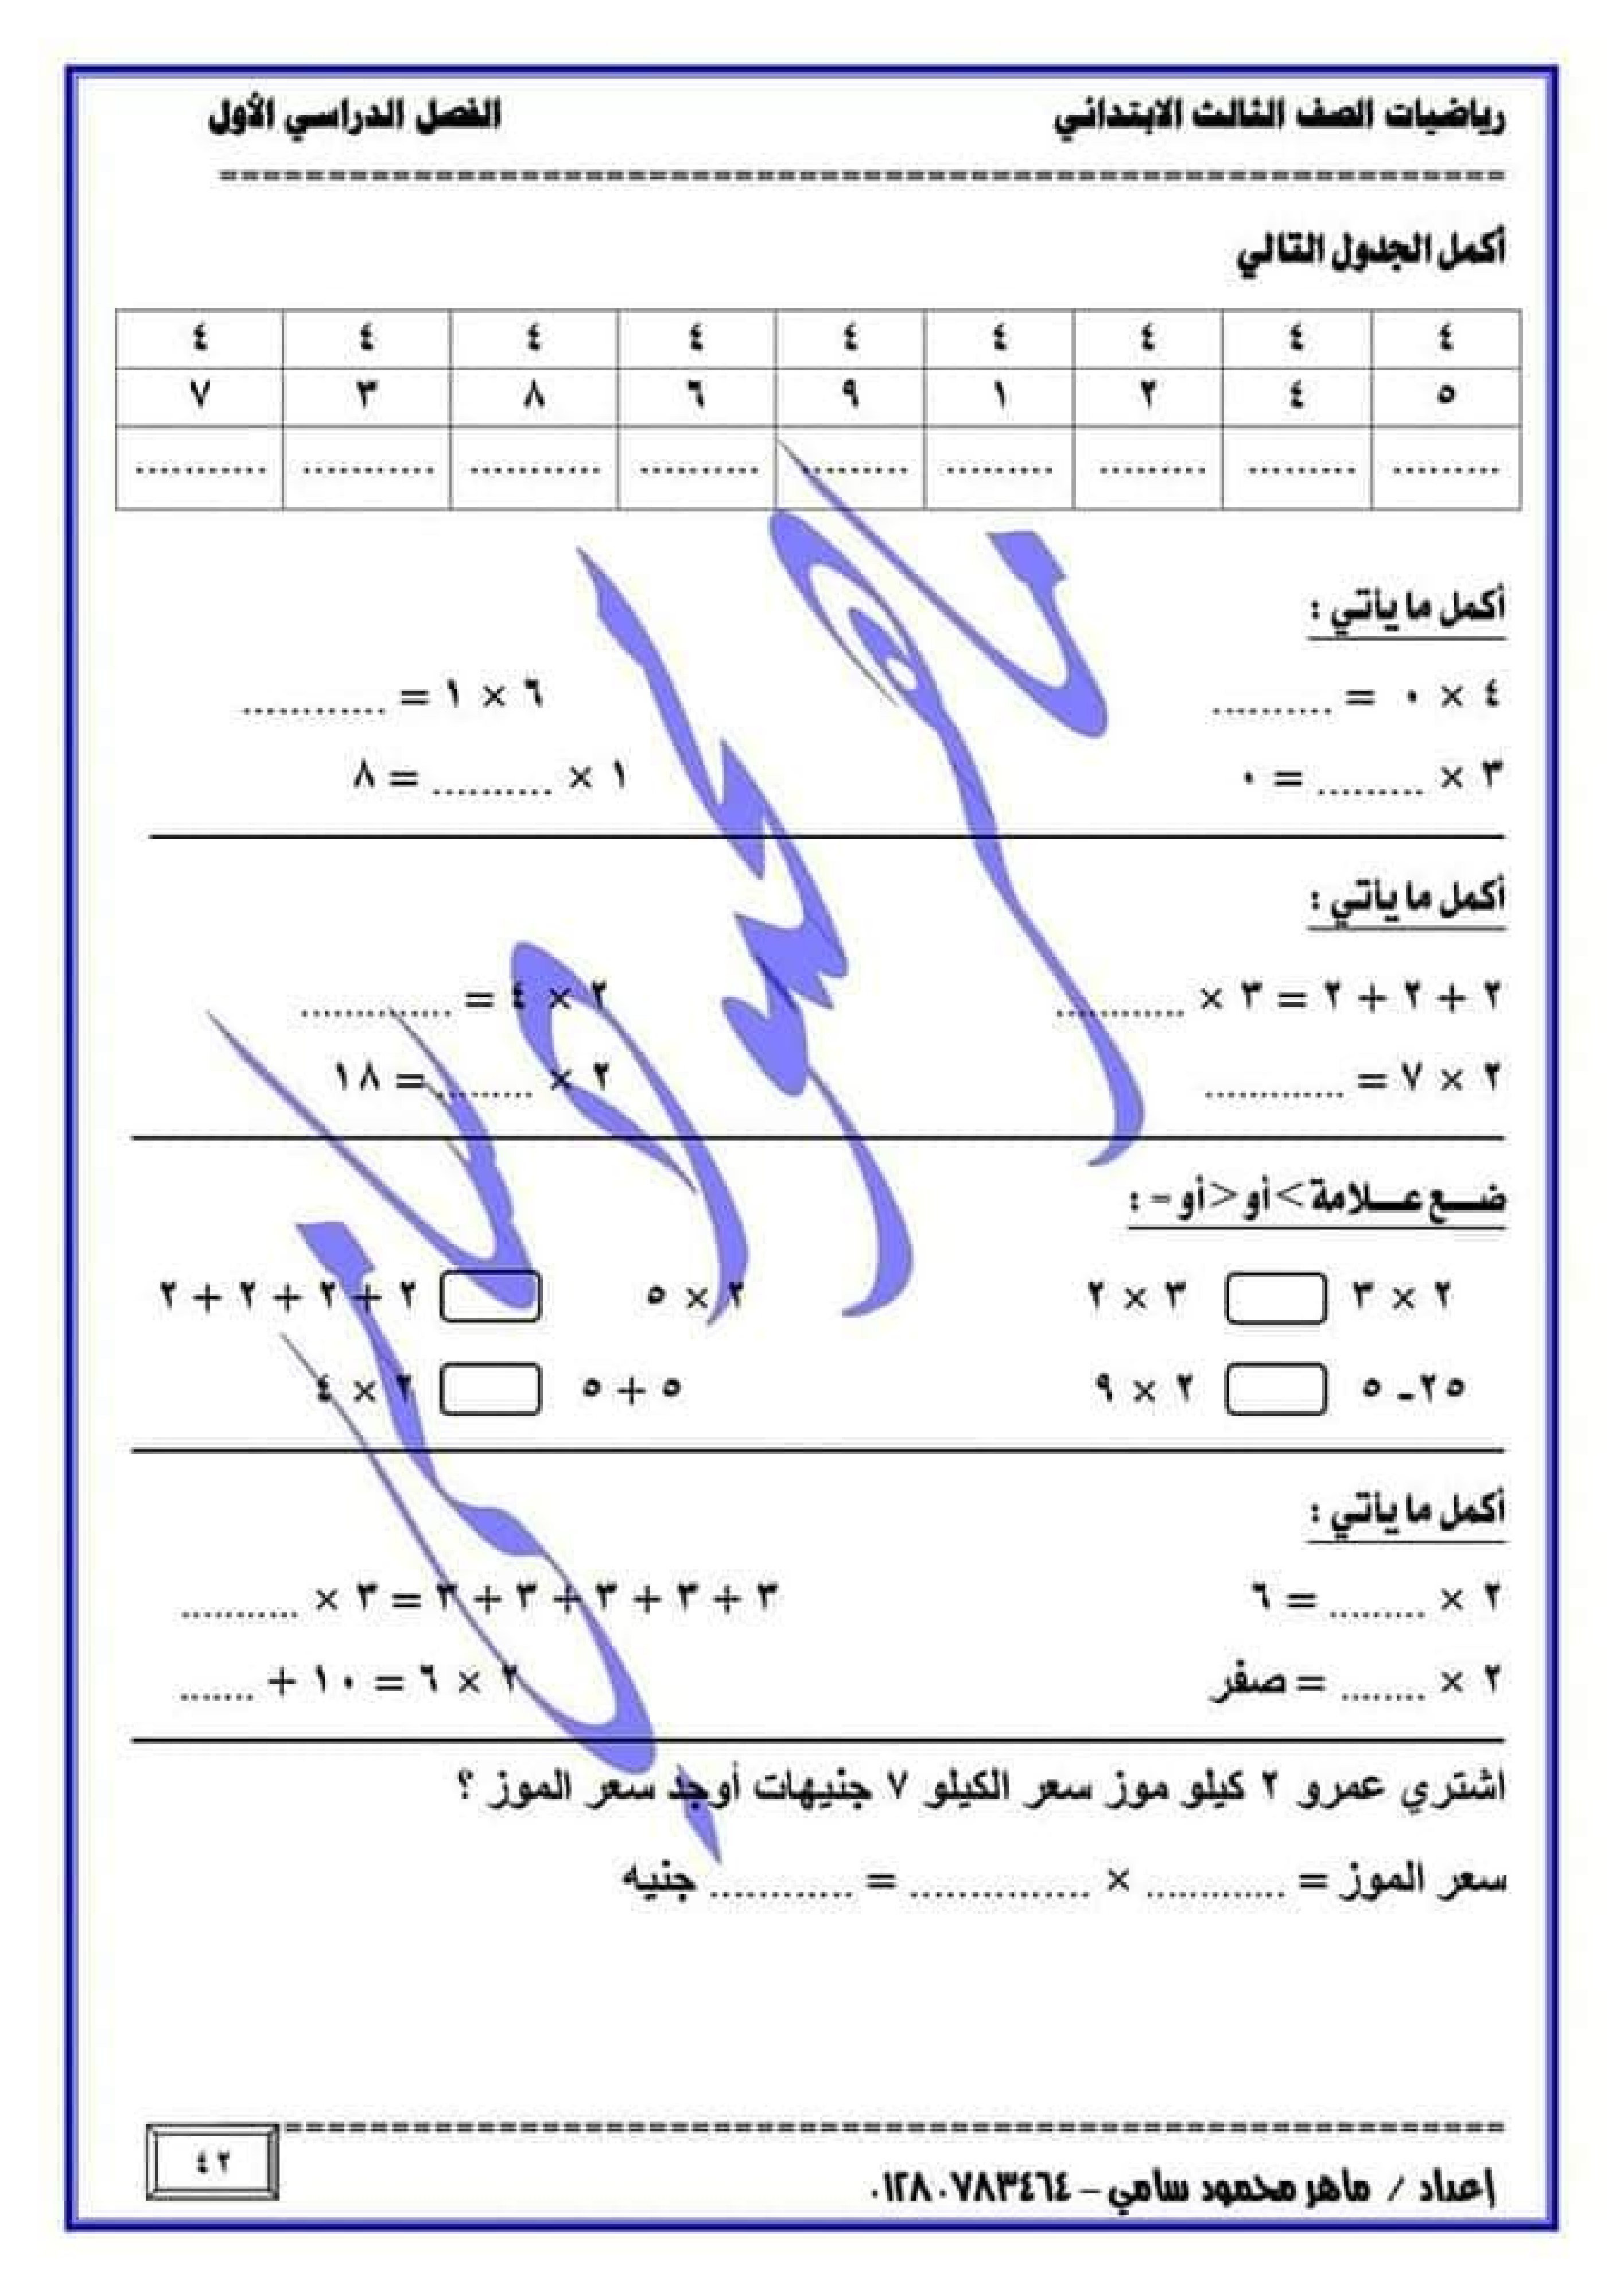 رياضيات الصف الثالث الابتدائي الفصل الدراسي الأول
أكمل الجدول التالي
٤ ٤ ٤ ٤ ٤ ٤ ٤ ٤ ٤
٥ ٤ ٢ ١ ٩ ٦ ٨ ٣ ٧
......... ......... ......... ......... ......... .......... ........... ........... ...........
أكمل ما يأتي :
٤ × ٠ = .......... ٦ × ١ = ............
٣ × ......... = ٠ ١ × .......... = ٨
أكمل ما يأتي :
٢ + ٢ + ٢ = ٣ × ........... ٢ × ٤ = .............
٢ × ٧ = ............ ٢ × ......... = ١٨
ضـــع عـــلامة > أو < أو = :
٢ × ٣ ٣ × ٢ ٢ × ٥ ٢ + ٢ + ٢ + ٢
٢٥ - ٥ ٢ × ٩ ٥ + ٥ ٢ × ٤
أكمل ما يأتي :
٢ × ........ = ٦ ٣ + ٣ + ٣ + ٣ + ٣ = ٣ × ..........
٢ × ....... = صفر ٢ × ٦ = ١٠ + .......
اشتري عمرو ٢ كيلو موز سعر الكيلو ٧ جنيهات أوجد سعر الموز ؟
سعر الموز = ............ × ............... = ............ جنيه
٤٢
إعداد / ماهر محمود سامي – ٠١٢٨٠٧٨٣٤٦٤